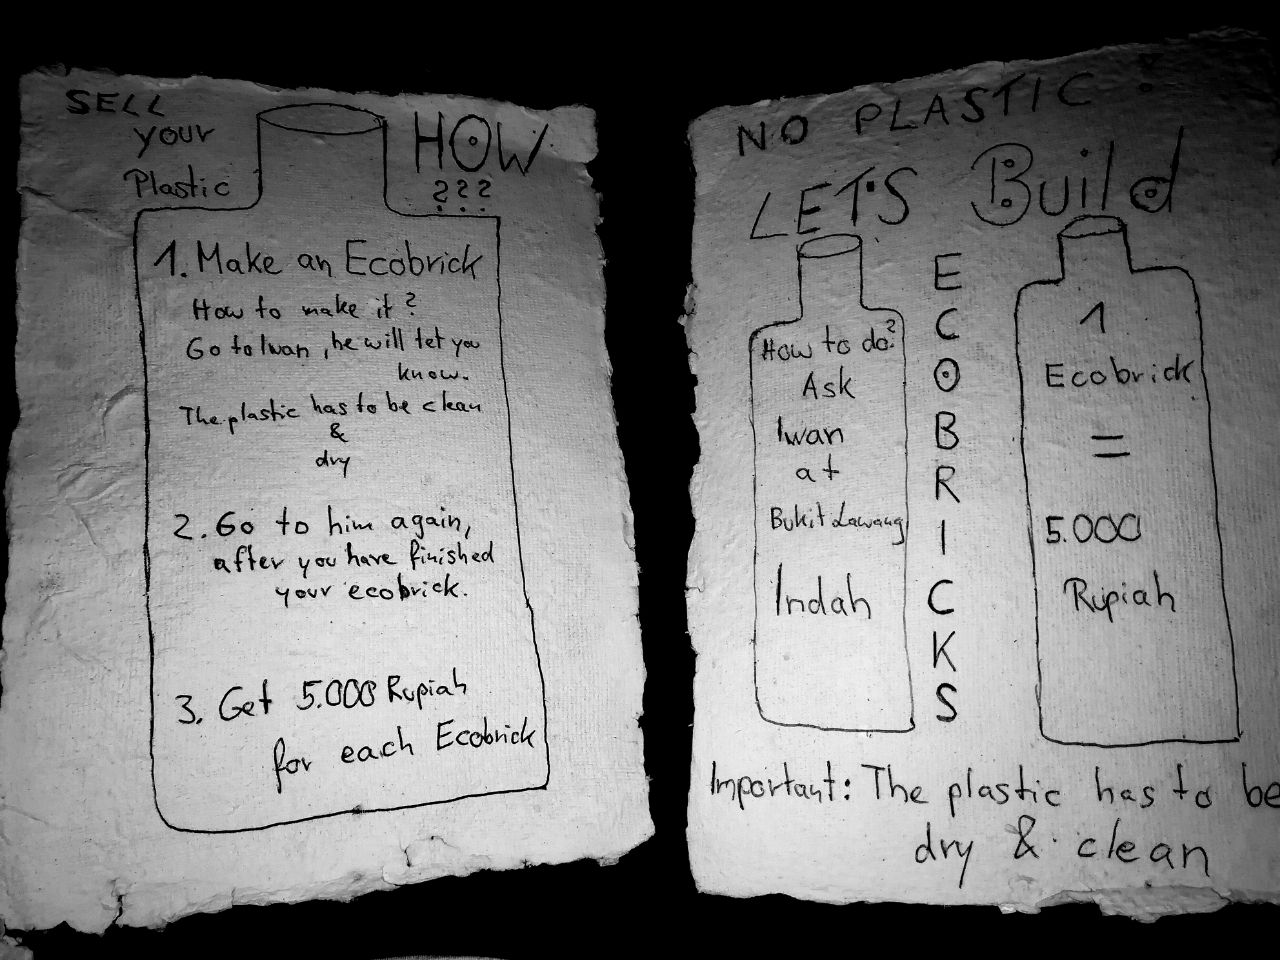 SELL
your
Plastic
HOW
???
1. Make an Ecobrick
How to make it?
Go to Iwan, he will tet you
know.
The plastic has to be clean
&
dry
2. Go to him again,
after you have finished
your ecobrick.
3. Get 5.000 Rupiah
for each Ecobrick
NO PLASTIC !
LET'S Build
ECOBRICKS
How to do?
Ask
Iwan
at
Bukit Lawang
Indah
1
Ecobrick
=
5.000
Rupiah
Important: The plastic has to be
dry & clean